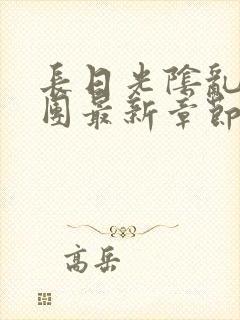 長日光陰亂
團最新章節
高岳